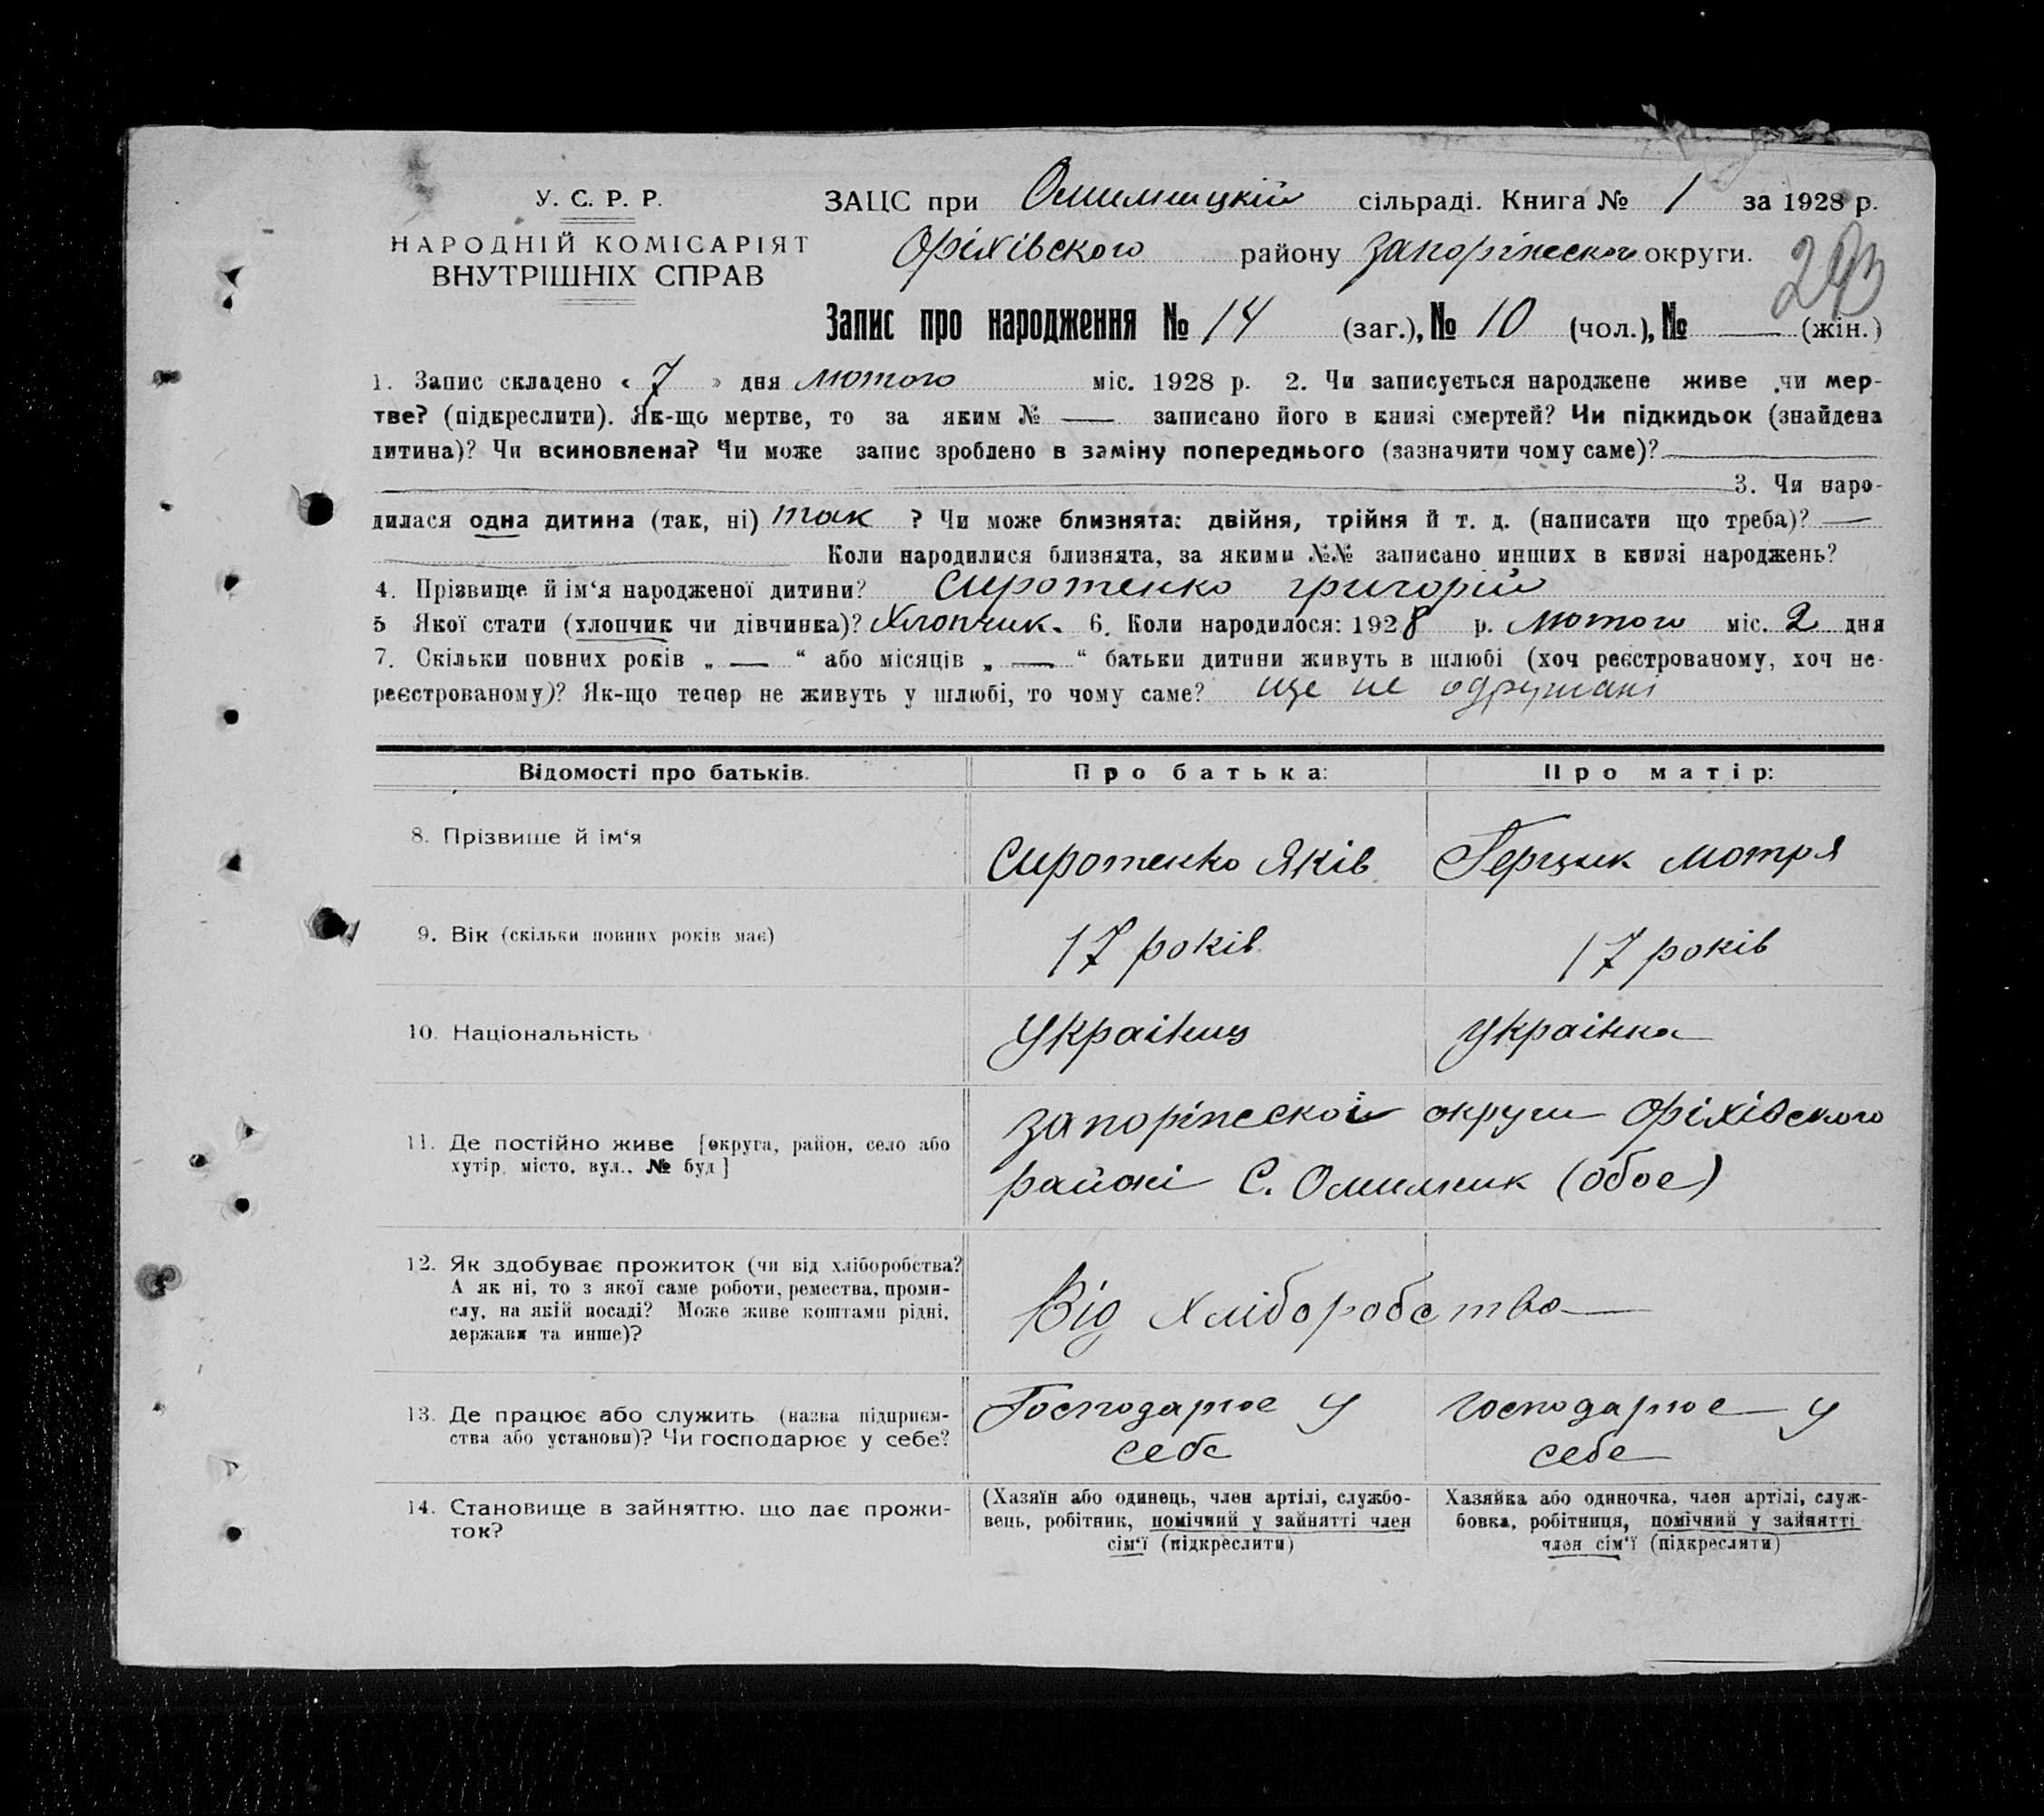 У. С. Р. Р.
НАРОДНІЙ КОМІСАРІЯТ
ВНУТРІШНІХ СПРАВ
ЗАЦС при Омильницкій сільраді. Книга № 1 за 1928 р.
Оріхівського району Запоріжської округи.
Запис про народження № 14 (заг.), № 10 (чол.), № — (жін.)
1. Запис складено « 7 » дня лютого міс. 1928 р. 2. Чи записується народжене живе чи мер-
тве? (підкреслити). Як-що мертве, то за яким № — записано його в книзі смертей? Чи підкидьок (знайдена
дитина)? Чи всиновлена? Чи може запис зроблено в заміну попереднього (зазначити чому саме)? —
— 3. Чи наро-
дилася одна дитина (так, ні) так ? Чи може близнята: двійня, трійня й т. д. (написати що треба)? —
— Коли народилися близнята, за якими №№ записано инших в книзі народжень?
4. Прізвище й ім‘я народженої дитини? Сиротенко Григорій
5 Якої стати (хлопчик чи дівчинка)? Хлопчик. 6. Коли народилося: 1928 р. лютого міс. 2 дня
7. Скільки повних років „ — “ або місяців „ — “ батьки дитини живуть в шлюбі (хоч реєстрованому, хоч не-
реєстрованому)? Як-що тепер не живуть у шлюбі, то чому саме? ще не одружані
Відомості про батьків. Про батька: Про матір:
8. Прізвище й ім‘я Сиротенко Яків Герцик Мотря
9. Вік (скільки повних років має) 17 років 17 років
10. Національність Українць Українка
11. Де постійно живе [округа, район, село або
хутір, місто, вул., № буд]
Запоріжської округи Оріхівського
району С. Омильник (обоє)
12. Як здобуває прожиток (чи від хліборобства?
А як ні, то з якої саме роботи, ремества, проми-
слу, на якій посаді? Може живе коштами рідні,
держави та инше)?
Від хліборобства
13. Де працює або служить (назва підприєм-
ства або установи)? Чи господарює у себе?
Господарює у
себе
господарює у
себе
14. Становище в зайняттю, що дає прожи-
ток?
(Хазяїн або одинець, член артілі, службо-
вець, робітник, помічний у зайнятті член
сім‘ї (підкреслити)
Хазяйка або одиночка, член артілі, служ-
бовка, робітниця, помічний у зайнятті
член сім‘ї (підкреслити)